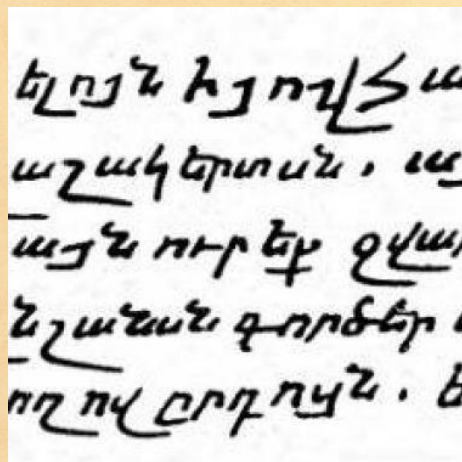 ելոյն ի յովհա
աշակերտան . այ
այն ուր եք զվար
նշանան գործեր
ող ով ըրդոյն . ե